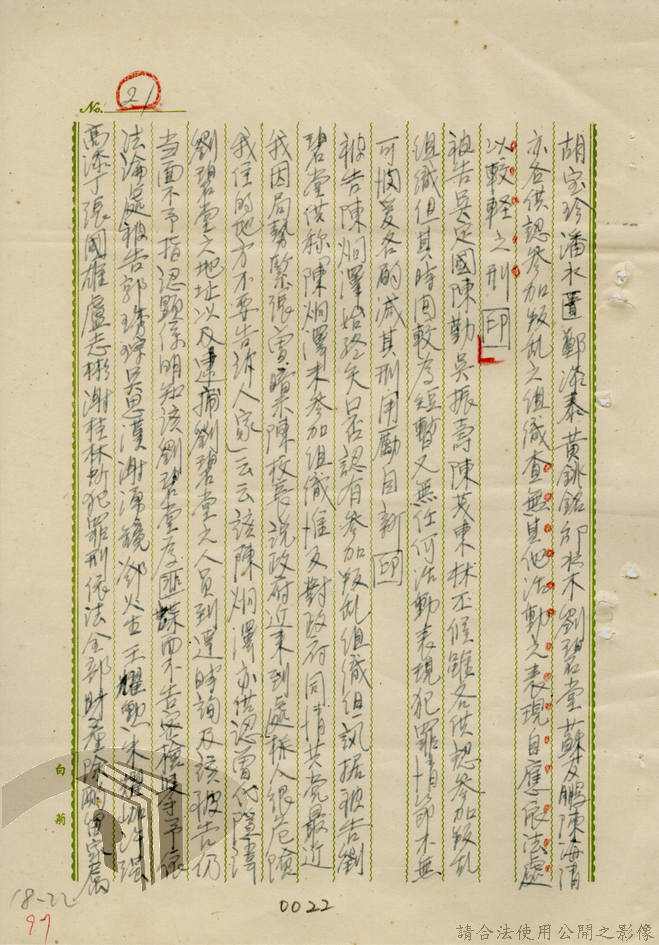 No. 21
胡宝珍潘永置鄭添泰黃銚銘邱木劉碧堂蘇友鵬陳海清
亦各供認參加叛乱之組織查無其他活動之表現自應依法處
以較輕之刑 印
被告吳定國陳勤吳振壽陳茂東林丕候雖各供認參加叛乱
組織但其時间較為短暫又無任何活動表現犯罪情節不無
可憫爰各酌減其刑用勵自新 印
被告陳炯澤始終矢口否認有參加叛乱組織但訊据被告劉
碧堂供称陳炯澤未參加組織惟反對政府同情共党最近
我因局勢緊張曾暗示陳校長說政府近來到處抓人很危險
我住的地方不要告訴人家」云云該陳炯澤亦供認曾代隱諱
劉碧堂之地址以及逮捕劉碧堂之人員到達時詢及該被告仍
当面不予指認顯係明知該劉碧堂為匪諜而不告密檢舉予依
法論處被告郭琇琮吳思漢謝湧鏡鄧火生王耀勲朱耀珈許強
高添丁張國雄盧志彬謝桂林所犯罪刑依法全部財產除酌留家屬
白
18-22
97
0022
請合法使用公開之影像